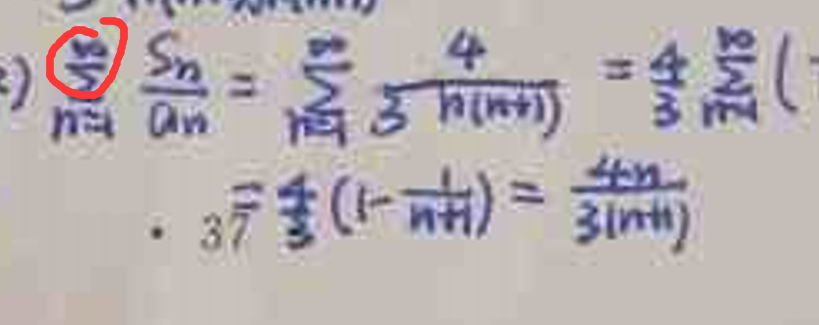 2) ∞∑n=1 Sn/an = ∞∑n=1 4/3 n(n+1) = 4/3 ∞∑n=1 (
= 4/3 (1 - 1/n+1) = 4n/3(n+1)
· 37